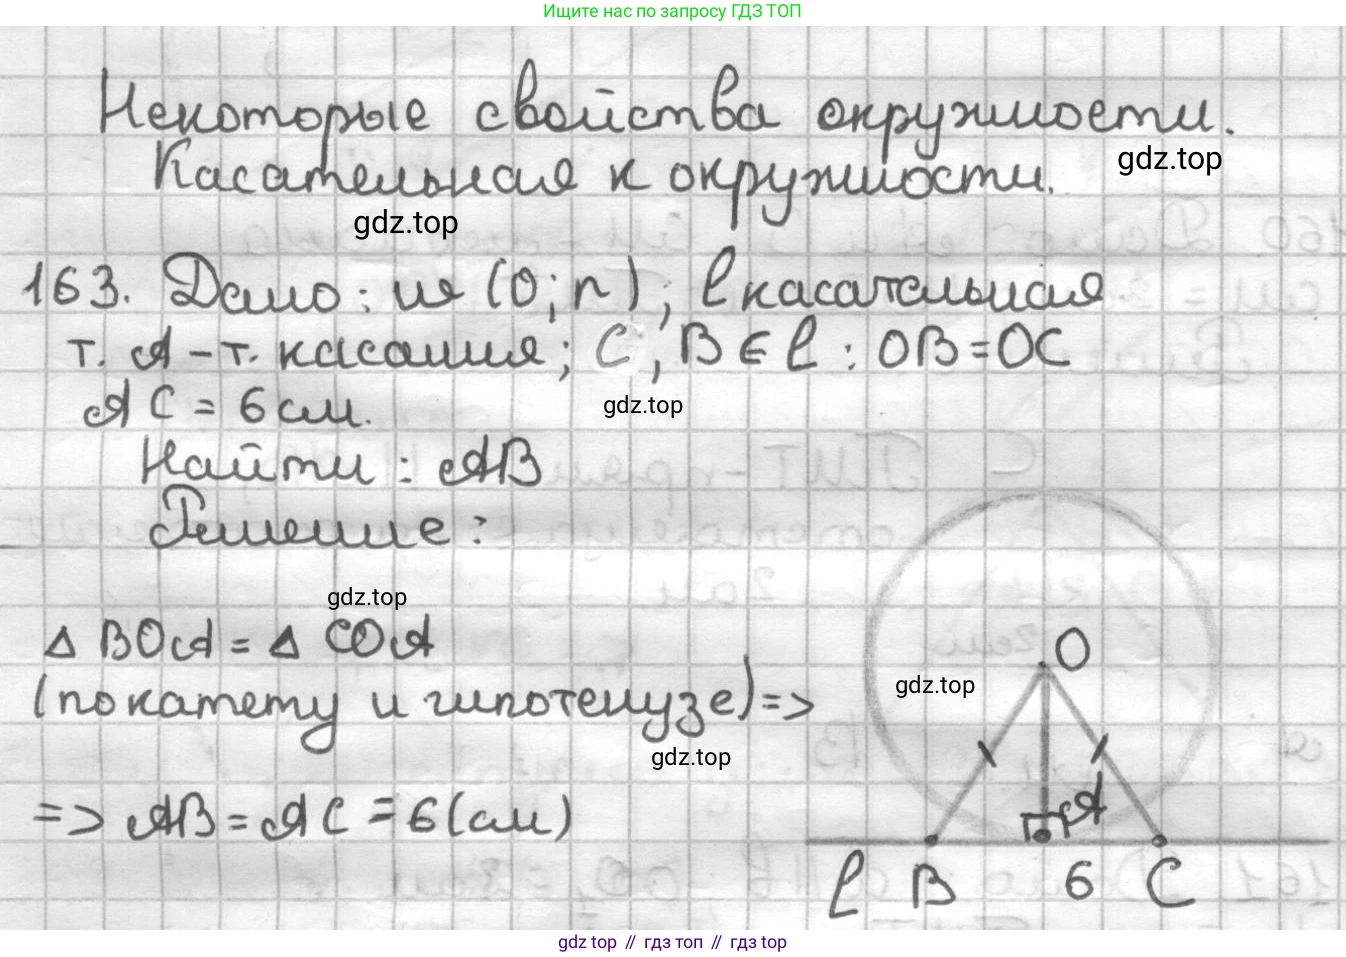 Ищите нас по запросу ГДЗ ТОП
Некоторые свойства окружности.
Касательная к окружности.
gdz.top
gdz.top
163. Дано: (O; r), l касательная
т. A – т. касания; C, B ∈ l : OB = OC
AC = 6 см.
gdz.top
Найти: AB
Решение:
gdz.top
△ BOA = △ COA
(по катету и гипотенузе) =>
gdz.top
=> AB = AC = 6 (см)
O
gdz.top
A
l B 6 C
gdz top // гдз топ // гдз top